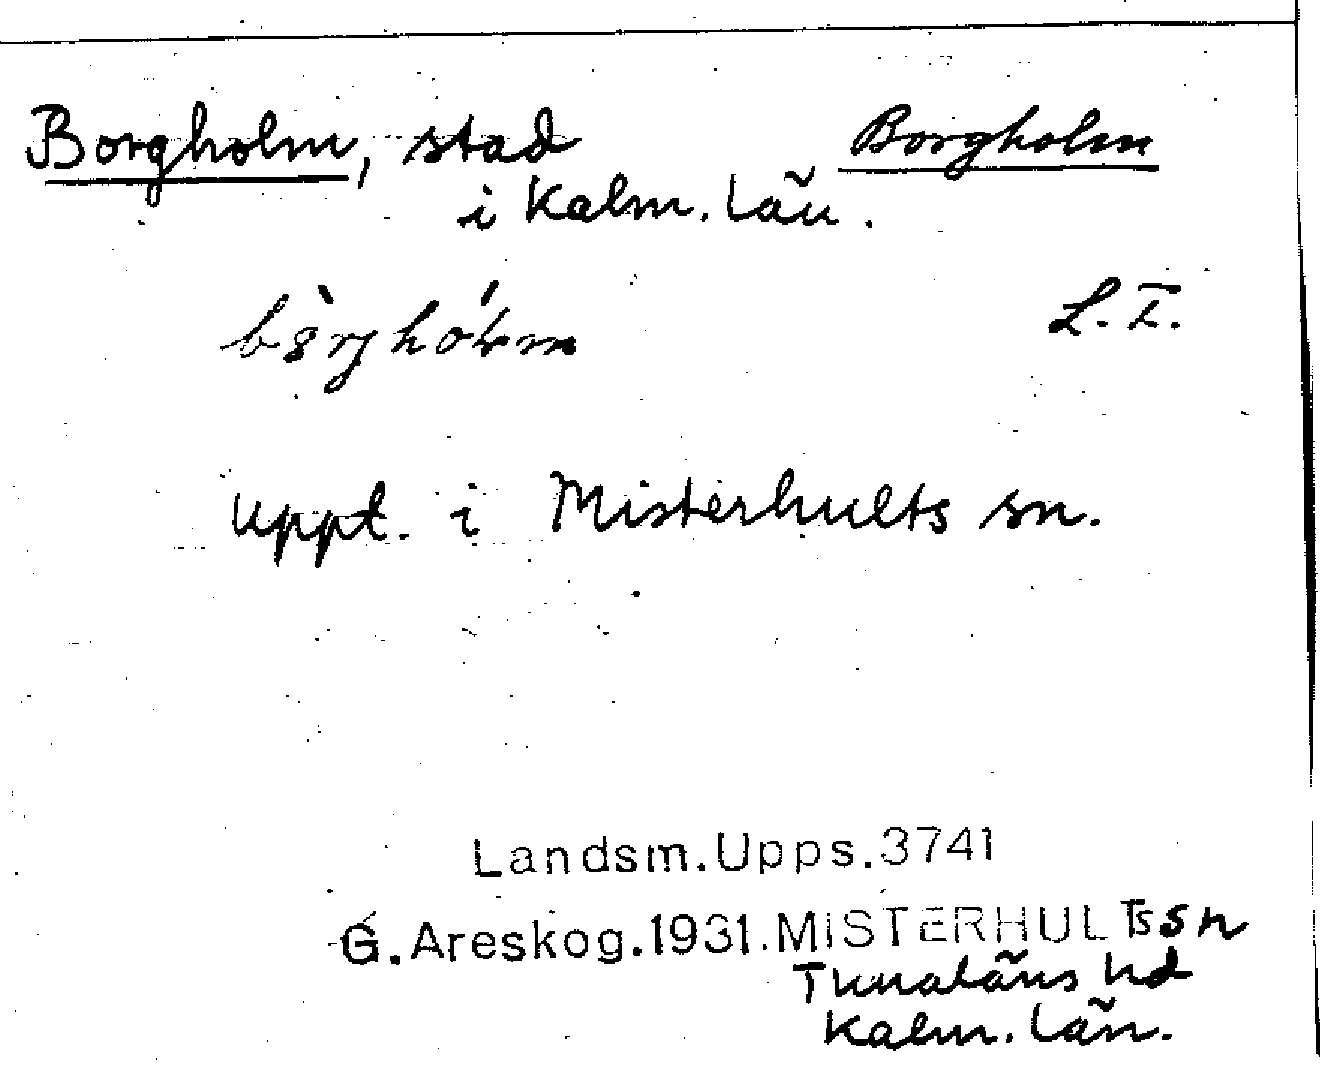 Borgholm, stad
Borgholm
i Kalm. län.
L. I.
uppt. i Misterhults sn.
Landsm.Upps.3741
G.Areskog.1931.MISTERHULTs sn
Tunaläns hd
Kalm. län.